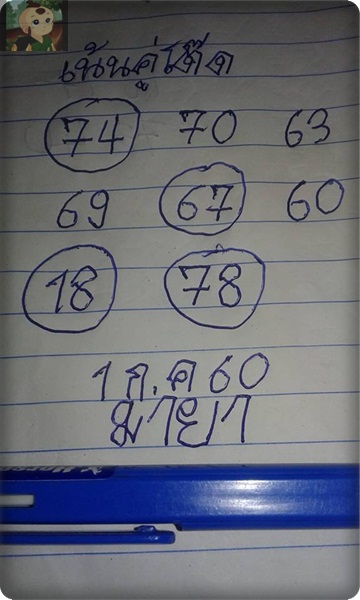 เน้นคู่โต๊ด
74 70 63
69 67 60
18 78
1 ก.ค 60
มายา